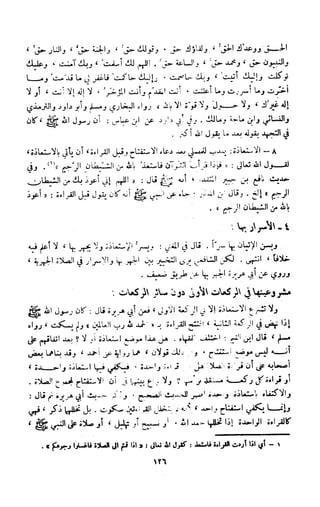 الحــق ووعدك الحق ، ولقاؤك حق . وقولك حق ، والجنة حق ، والنار حق ،
والنبيون حق ، ومحمد حق ، والساعة حق . اللهم لك أسلمت ، وبك آمنت ، وعليك
توكلت وإليك أنبت ، وبك خاصمت ، وإليك حاكمت فاغفر لي ما قدمت وما
أخرت وما أسررت وما أعلنت ، أنت المقدم وأنت المؤخر ، لا إله إلا أنت ، أو لا
إله غيرك ، ولا حــول ولا قوة إلا بالله ، رواه البخاري ومسلم وأبو داود والترمذي
والنسائي وابن ماجه ومالك . وفي أبي داود عن ابن عباس : أن رسول الله ﷺ ، كان
في التهجد يقوله بعد ما يقول الله أكبر .
٨ - الاستعاذة : يندب للمصلي بعد دعاء الاستفتاح وقبل القراءة ، أن يأتي بالاستعاذة ،
لقــول الله تعالى : ﴿ فإذا قرأت القرآن فاستعذ بالله من الشيطان الرجيم ﴾ (١) . وفي
حديث نافع بن جبير المتقدم ، أنه ﷺ قال : « اللهم إني أعوذ بك من الشيطان
الرجيم » إلخ . وقال ابن المنذر : جاء عن النبي ﷺ أنه كان يقول قبل القراءة : « أعوذ
بالله من الشيطان الرجيم » .
٤ - الأسرار بها :
ويسن الإتيان بها سراً . قال في المغني : ويسر الاستعاذة ولا يجهر بها ، لا أعلم فيه
خلافاً ، انتهى . لكن الشافعي يرى التخيير بين الجهر بها والإسرار في الصلاة الجهرية ،
وروي عن أبي هريرة الجهر بها عن طريق ضعيف .
مشروعيتها في الركعات الأولى دون سائر الركعات :
ولا تشرع الاستعاذة إلا في الركعة الأولى . فعن أبي هريرة قال : كان رسول الله ﷺ
إذا نهض في الركعة الثانية ، افتتح القراءة بـ « الحمد لله رب العالمين » ولم يسكت ، رواه
مسلم ، قال ابن القيم : اختلف الفقهاء . هل هذا موضع استعاذة أو لا ؟ بعد اتفاقهم على
أنــه ليس موضع استفتاح ، وفي ذلك قولان ، هما رواية عن أحمد ، وقد بناها بعض
أصحابه على أن قراءة الصلاة هل هي قراءة واحدة ، فيكفي فيها استعاذة واحدة ،
أو قراءة كل ركعــة مستقلة برأسها ؟ ولا نزاع بينهما في أن الاستفتاح لمجموع الصلاة .
والاكتفاء باستعاذة واحدة أظهر للحديث الصحيح . وذكر حديث أبي هريرة ثم قال :
وإنمــا يكفي استفتاح واحد ، لأنه لم يتخلل القراءتين سكوت . بل تخللها ذكر ، فهي
كالقراءة الواحدة إذا تخللها حمد الله ، أو تسبيح أو تهليل ، أو صلاة على النبي ﷺ ،
١ - أي إذا أردت القراءة فاستعذ : كقول الله تعالى : « إذا قمتم إلى الصلاة فاغسلوا وجوهكم » .
١٢٦